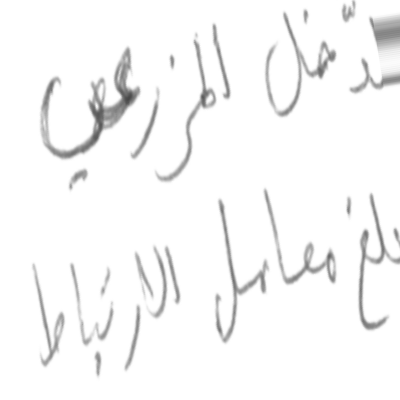 دخل المزرعين
بلغ معامل الارتباط